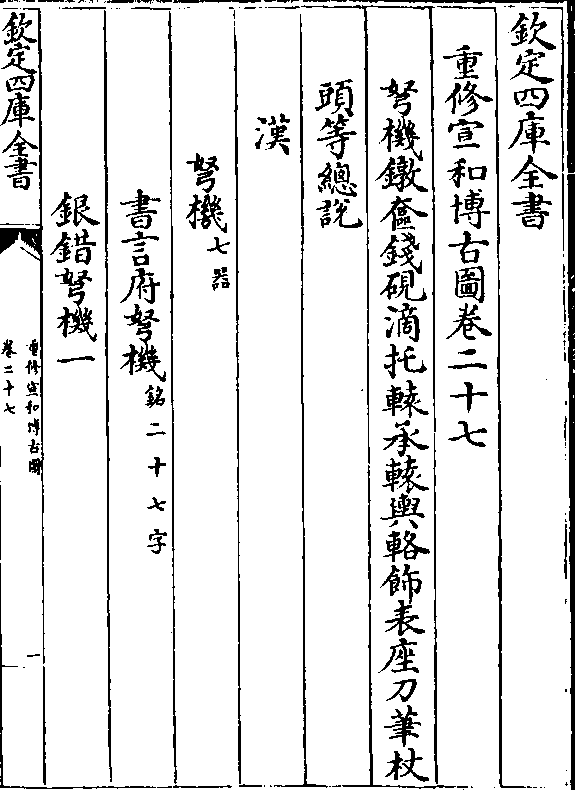 欽定四庫全書
重修宣和博古圖卷二十七
弩機鐓奩錢硯滴托轅承轅輿輅飾表座刀筆杖
頭等總說
漢
弩機七器
書言府弩機銘二十七字
銀錯弩機一
欽定四庫全書
重修宣和博古圖
卷二十七
一